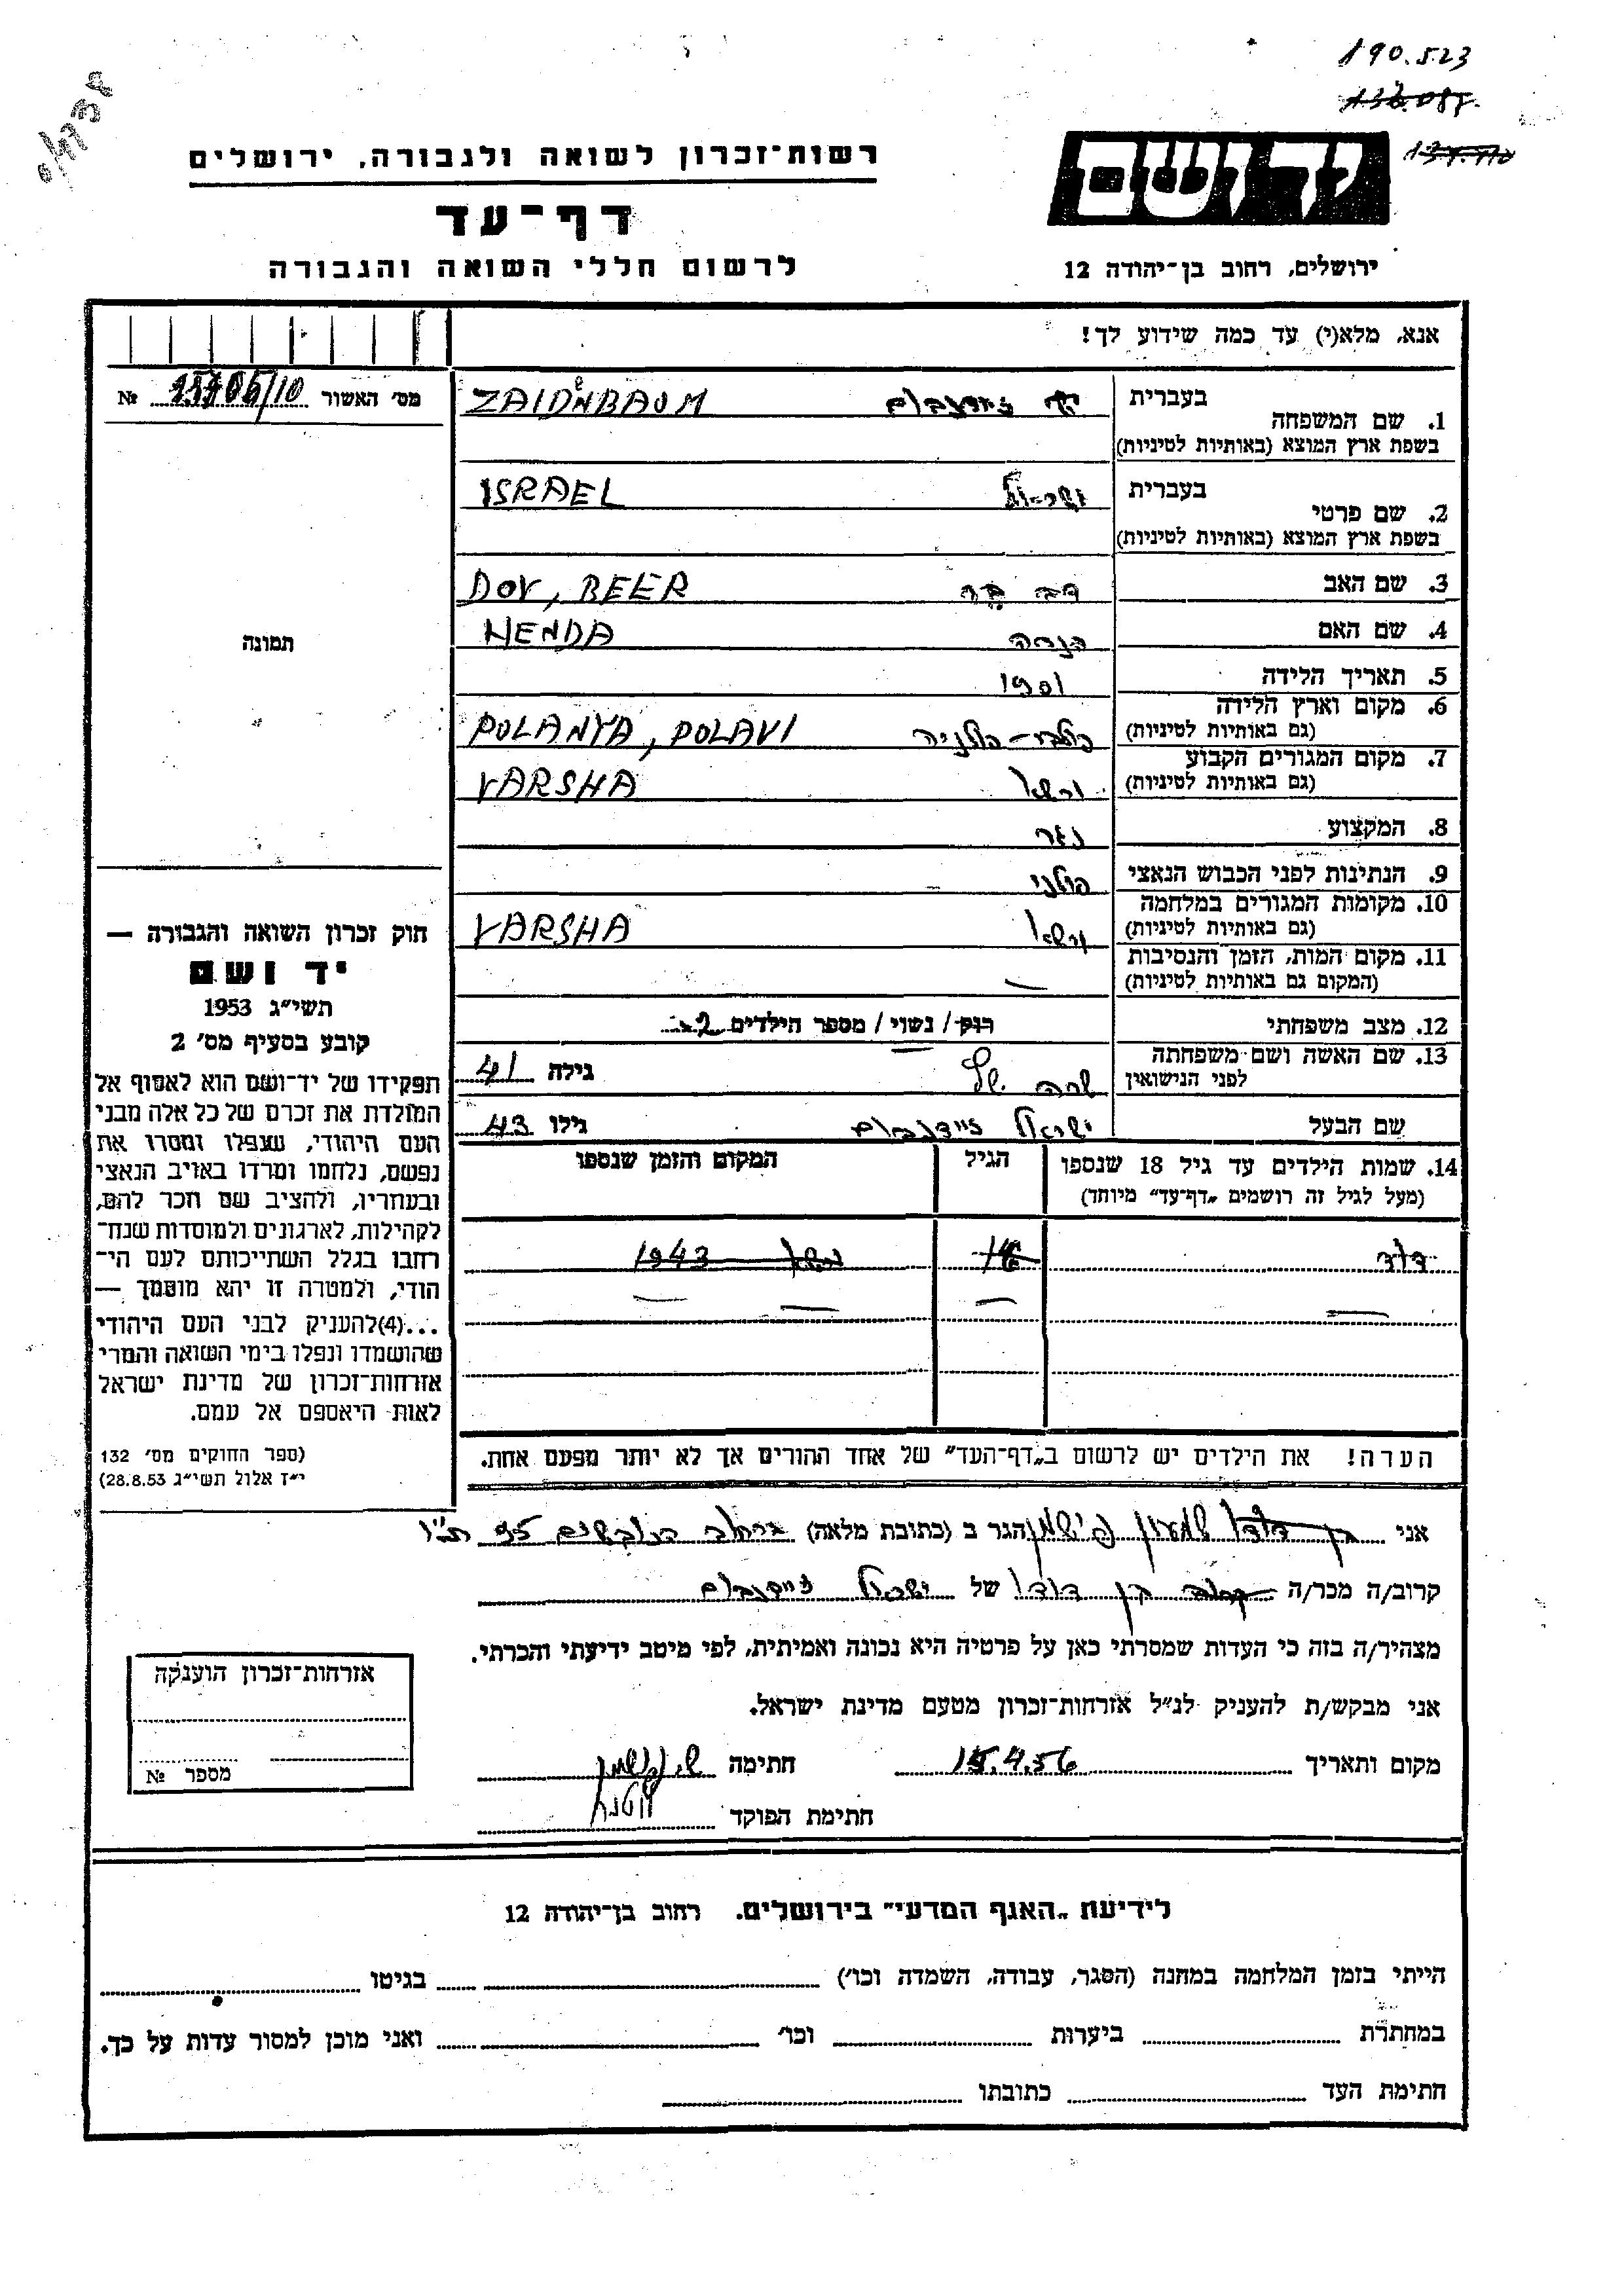 190.523
רשות־זכרון לשואה ולגבורה, ירושלים
יד ושם
דף־עד
לרשום חללי השואה והגבורה
ירושלים, רחוב בן־יהודה 12
אנא, מלא(י) עד כמה שידוע לך!
מס׳ האשור №
1. שם המשפחה בעברית
בשפת ארץ המוצא (באותיות לטיניות)
ZAIDNBAUM
2. שם פרטי בעברית ישראל
בשפת ארץ המוצא (באותיות לטיניות)
ISRAEL
3. שם האב דב בר DOV, BEER
4. שם האם הנדה HENDA
5. תאריך הלידה 1901
6. מקום וארץ הלידה פולבי - פולניה POLANYA, POLAVI
(גם באותיות לטיניות)
7. מקום המגורים הקבוע ורשא VARSHA
(גם באותיות לטיניות)
8. המקצוע נגר
9. הנתינות לפני הכבוש הנאצי פולני
10. מקומות המגורים במלחמה ורשא VARSHA
(גם באותיות לטיניות)
11. מקום המות, הזמן והנסיבות
(המקום גם באותיות לטיניות)
12. מצב משפחתי רווק / נשוי / מספר הילדים 2
13. שם האשה ושם משפחתה שרה גילה 41
לפני הנישואין
שם הבעל ישראל זיידנבוים גילו 43
14. שמות הילדים עד גיל 18 שנספו הגיל המקום והזמן שנספו
(מעל לגיל זה רושמים „דף־עד״ מיוחד)
דוד ורשא 1943
הערה! את הילדים יש לרשום ב„דף־העד״ של אחד ההורים אך לא יותר מפעם אחת.
תמונה
חוק זכרון השואה והגבורה —
יד ושם
תשי״ג 1953
קובע בסעיף מס׳ 2
תפקידו של יד־ושם הוא לאסוף אל
המולדת את זכרם של כל אלה מבני
העם היהודי, שנפלו ומסרו את
נפשם, נלחמו ומרדו באויב הנאצי
ובעוזריו, ולהציב שם וזכר להם,
לקהילות, לארגונים ולמוסדות שנח־
רבו בגלל השתייכותם לעם הי־
הודי, ולמטרה זו יהא מוסמך —
...(4)להעניק לבני העם היהודי
שהושמדו ונפלו בימי השואה והמרי
אזרחות־זכרון של מדינת ישראל
לאות היאספם אל עמם.
(ספר החוקים מס׳ 132
י״ז אלול תשי״ג 28.8.53)
אני שמעון פישמן הגר ב (כתובת מלאה) ברחוב הכובשים 35 ת״א
קרוב/ה מכר/ה בן דודו של ישראל זיידנבוים
מצהיר/ה בזה כי העדות שמסרתי כאן על פרטיה היא נכונה ואמיתית, לפי מיטב ידיעתי והכרתי.
אני מבקש/ת להעניק לנ״ל אזרחות־זכרון מטעם מדינת ישראל.
מקום ותאריך 15.4.56 חתימה ש. פישמן
חתימת הפוקד
אזרחות־זכרון הוענקה
מספר №
לידיעת „האגף המדעי״ בירושלים. רחוב בן־יהודה 12
הייתי בזמן המלחמה במחנה (הסגר, עבודה, השמדה וכו׳) בגיטו
במחתרת ביערות וכו׳ ואני מוכן למסור עדות על כך.
חתימת העד כתובתו